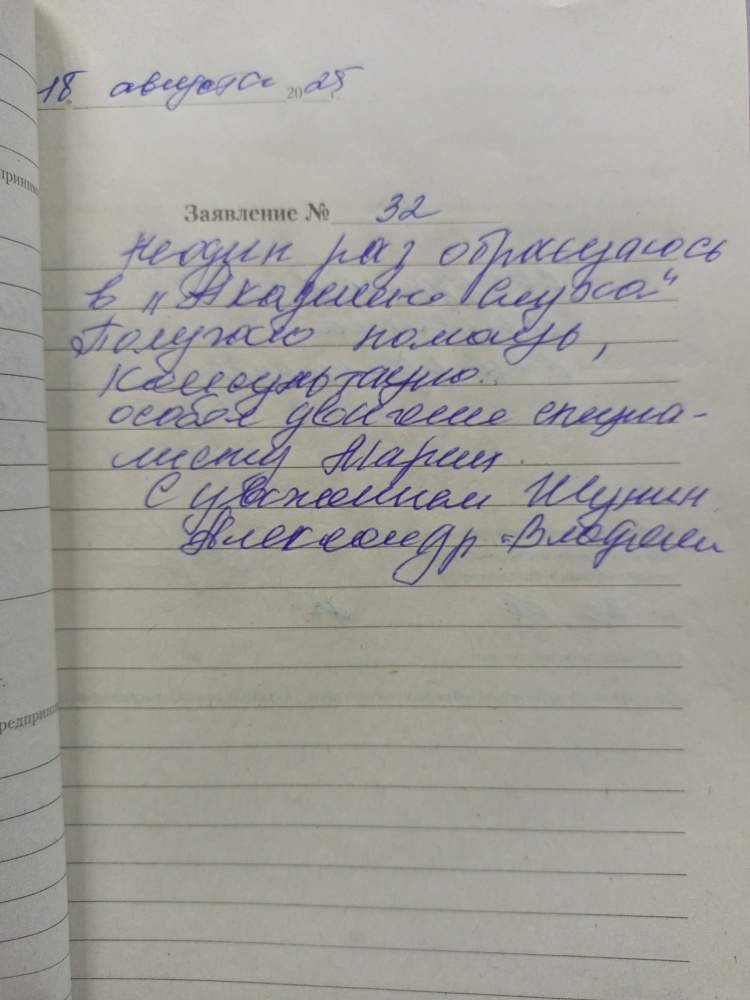 18 августа 2025 г.
Заявление № 32
Неодин раз обращаюсь
в „Академию Слуха“
Получаю помощь,
Консультацию.
особое движение специа-
листу Марии.
С уважением Шунин
Александр Владими
принима
редприни